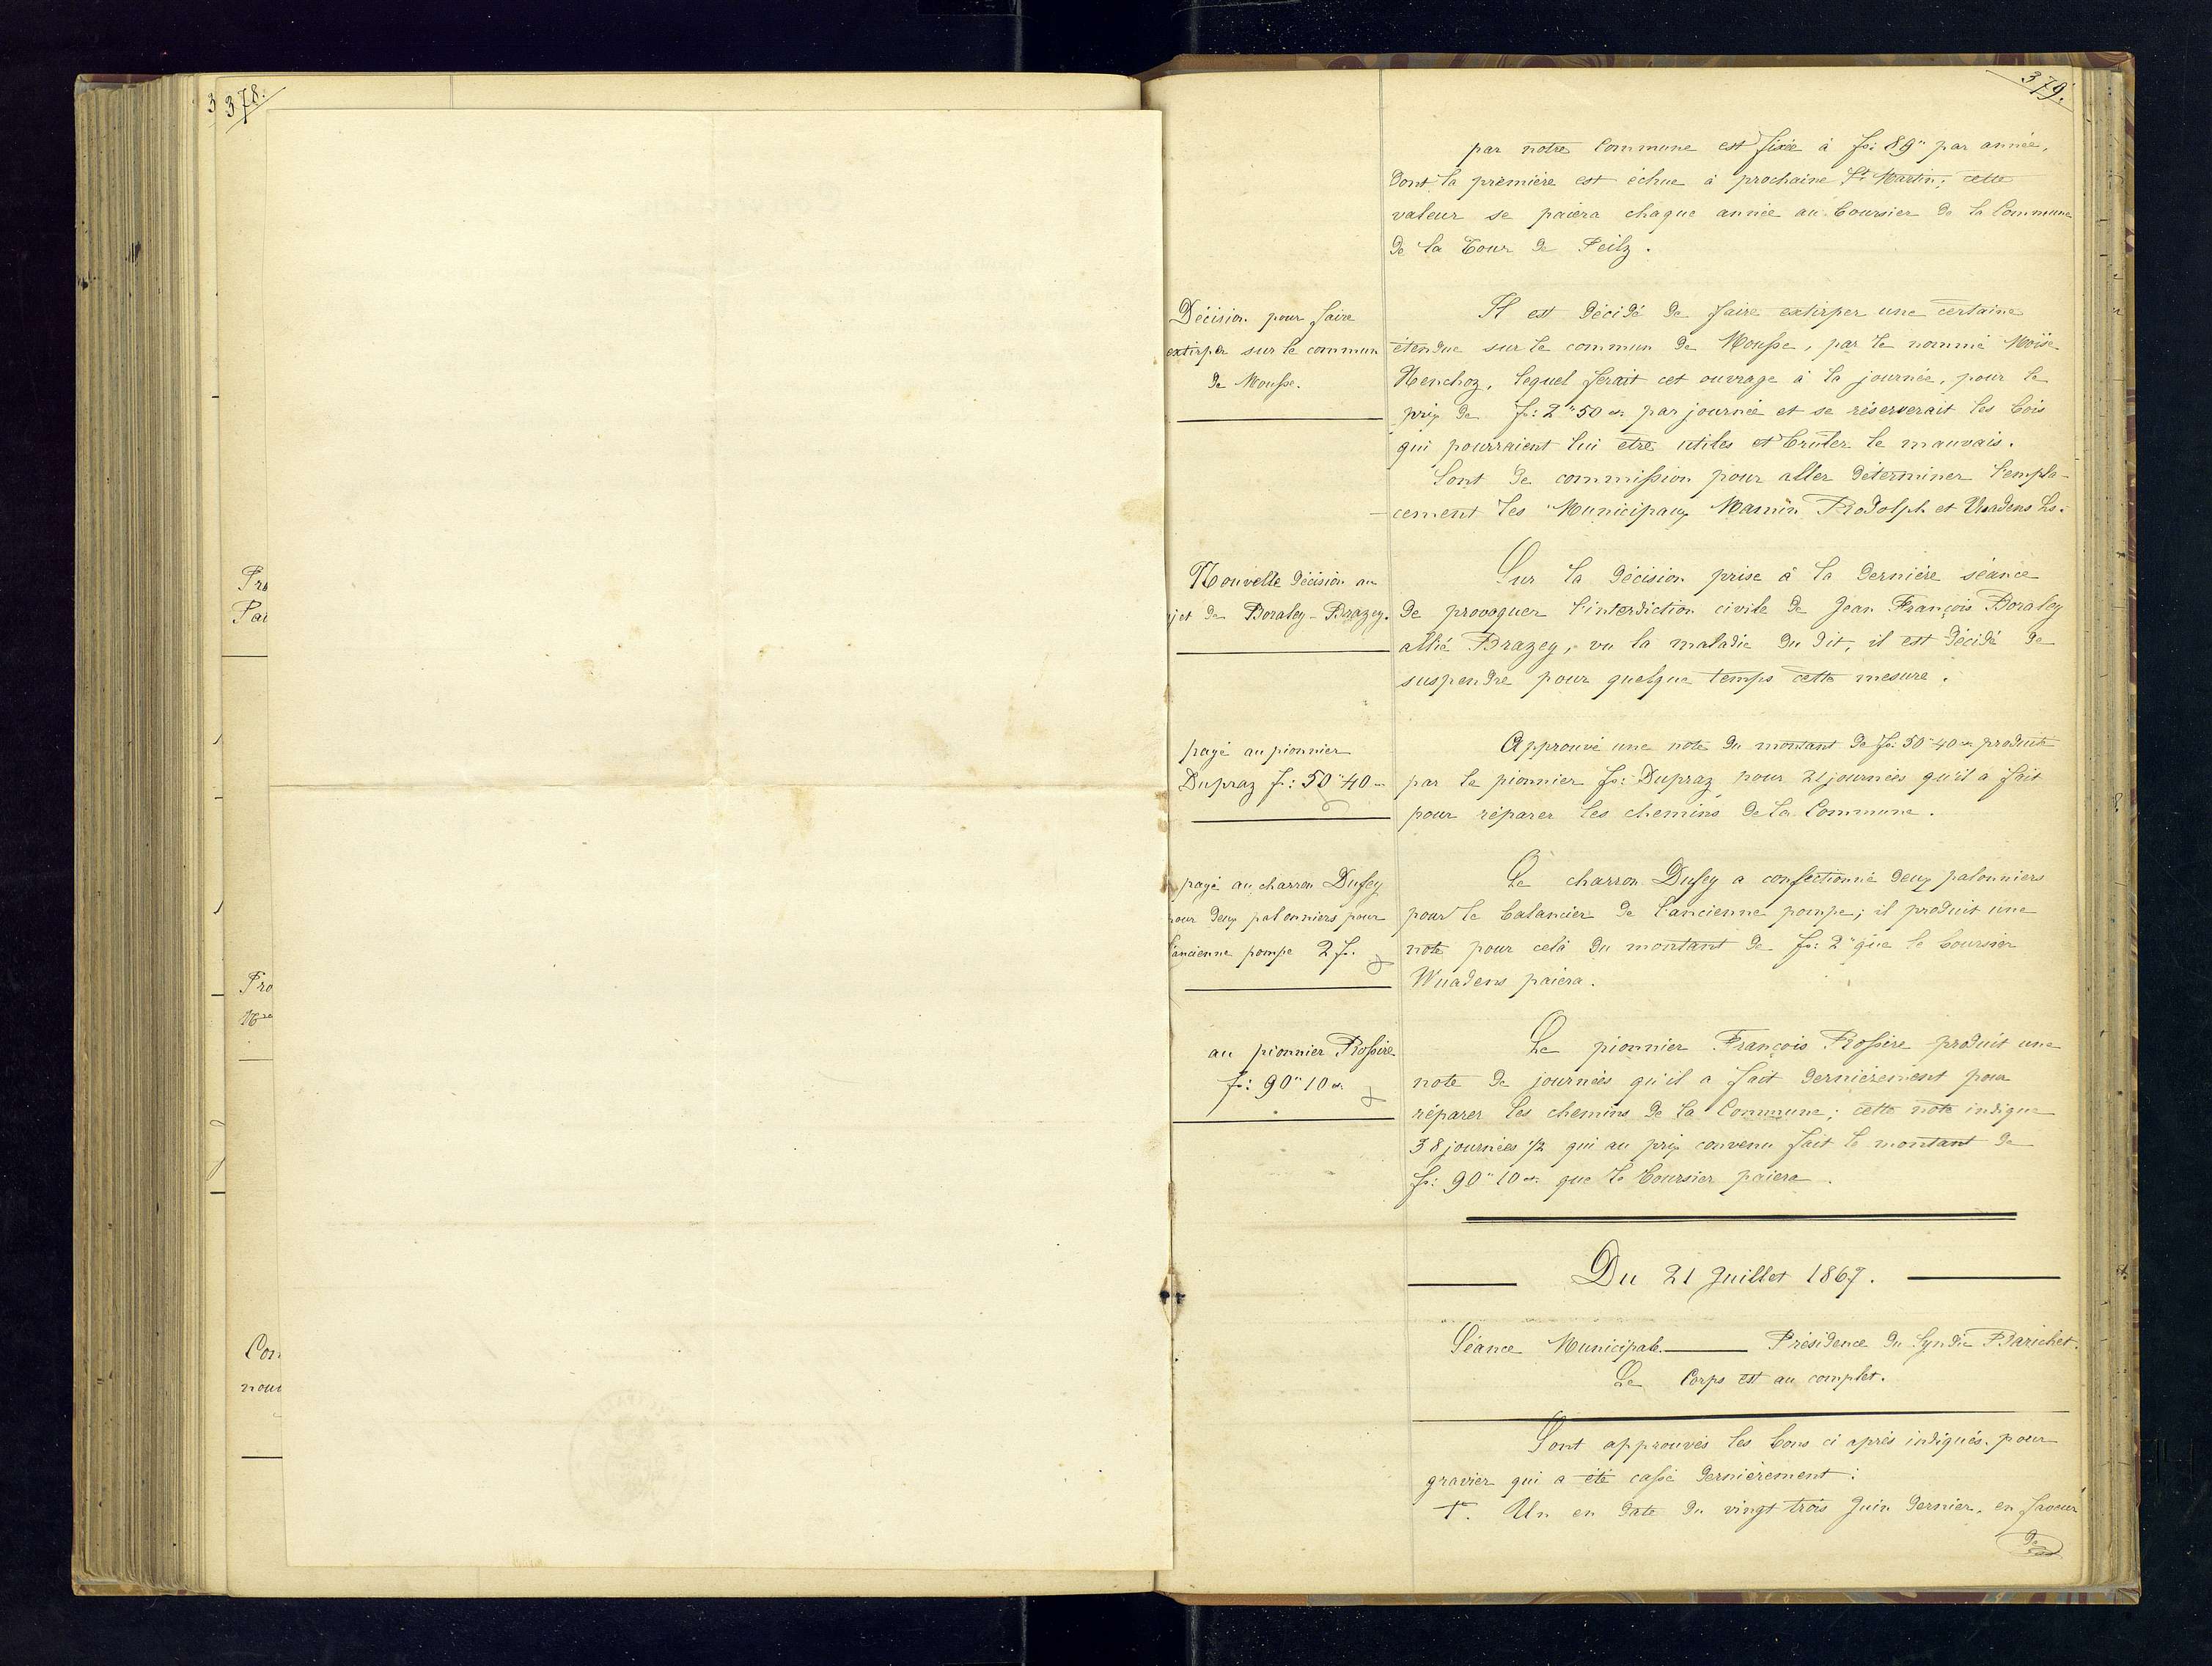 3
378.
Pro
Pai
Pro
Con
nou
379.
par notre Commune est fixée à fr: 89" par année,
dont la première est échue à prochaine St. Martin; cette
valeur se paiera chaque année au boursier de la Commune
de la Tour de Peilz.
Décision pour faire
extirper sur le commun
de Mousse.
Il est décidé de faire extirper une certaine
étendue sur le commun de Mousse, par le nommé Moïse
Henchoz, lequel ferait cet ouvrage à la journée, pour le
prix de fr: 2"50 cs par journée et se réserverait les bois
qui pourraient lui être utiles et brûler le mauvais.
Sont de commission pour aller déterminer l'empla-
cement les Municipaux Mamin Rodolph et Vuadens Ls.
Nouvelle décision au
jet de Boraley-Brazey.
Sur la décision prise à la dernière séance
de provoquer l'interdiction civile de Jean François Boraley
allié Brazey, vu la maladie du dit, il est décidé de
suspendre pour quelque temps cette mesure.
payé au pionnier
Dupraz fr: 50"40
Approuvé une note du montant de fr: 50"40 cs produite
par le pionnier fs: Dupraz pour 21 journées qu'il a fait
pour réparer les chemins de la Commune.
payé au charron Dufey
pour deux palonniers pour
l'ancienne pompe 2 fr.
Le charron Dufey a confectionné deux palonniers
pour le balancier de l'ancienne pompe; il produit une
note pour celà du montant de fr: 2" que le boursier
Wuadens paiera.
au pionnier Rossire
fr: 90"10 cs.
Le pionnier François Rossire produit une
note de journées qu'il a fait dernièrement pour
réparer les chemins de la Commune; cette note indique
38 journées 1/2 qui au prix convenu fait le montant de
fr: 90"10 cs. que le boursier paiera.
Du 21 Juillet 1867.
Séance Municipale. Présidence du Syndic Barichet.
Le Corps est au complet.
Sont approuvés les bons ci après indiqués, pour
gravier qui a été cassé dernièrement:
1°. Un en date du vingt trois Juin dernier, en faveur
de